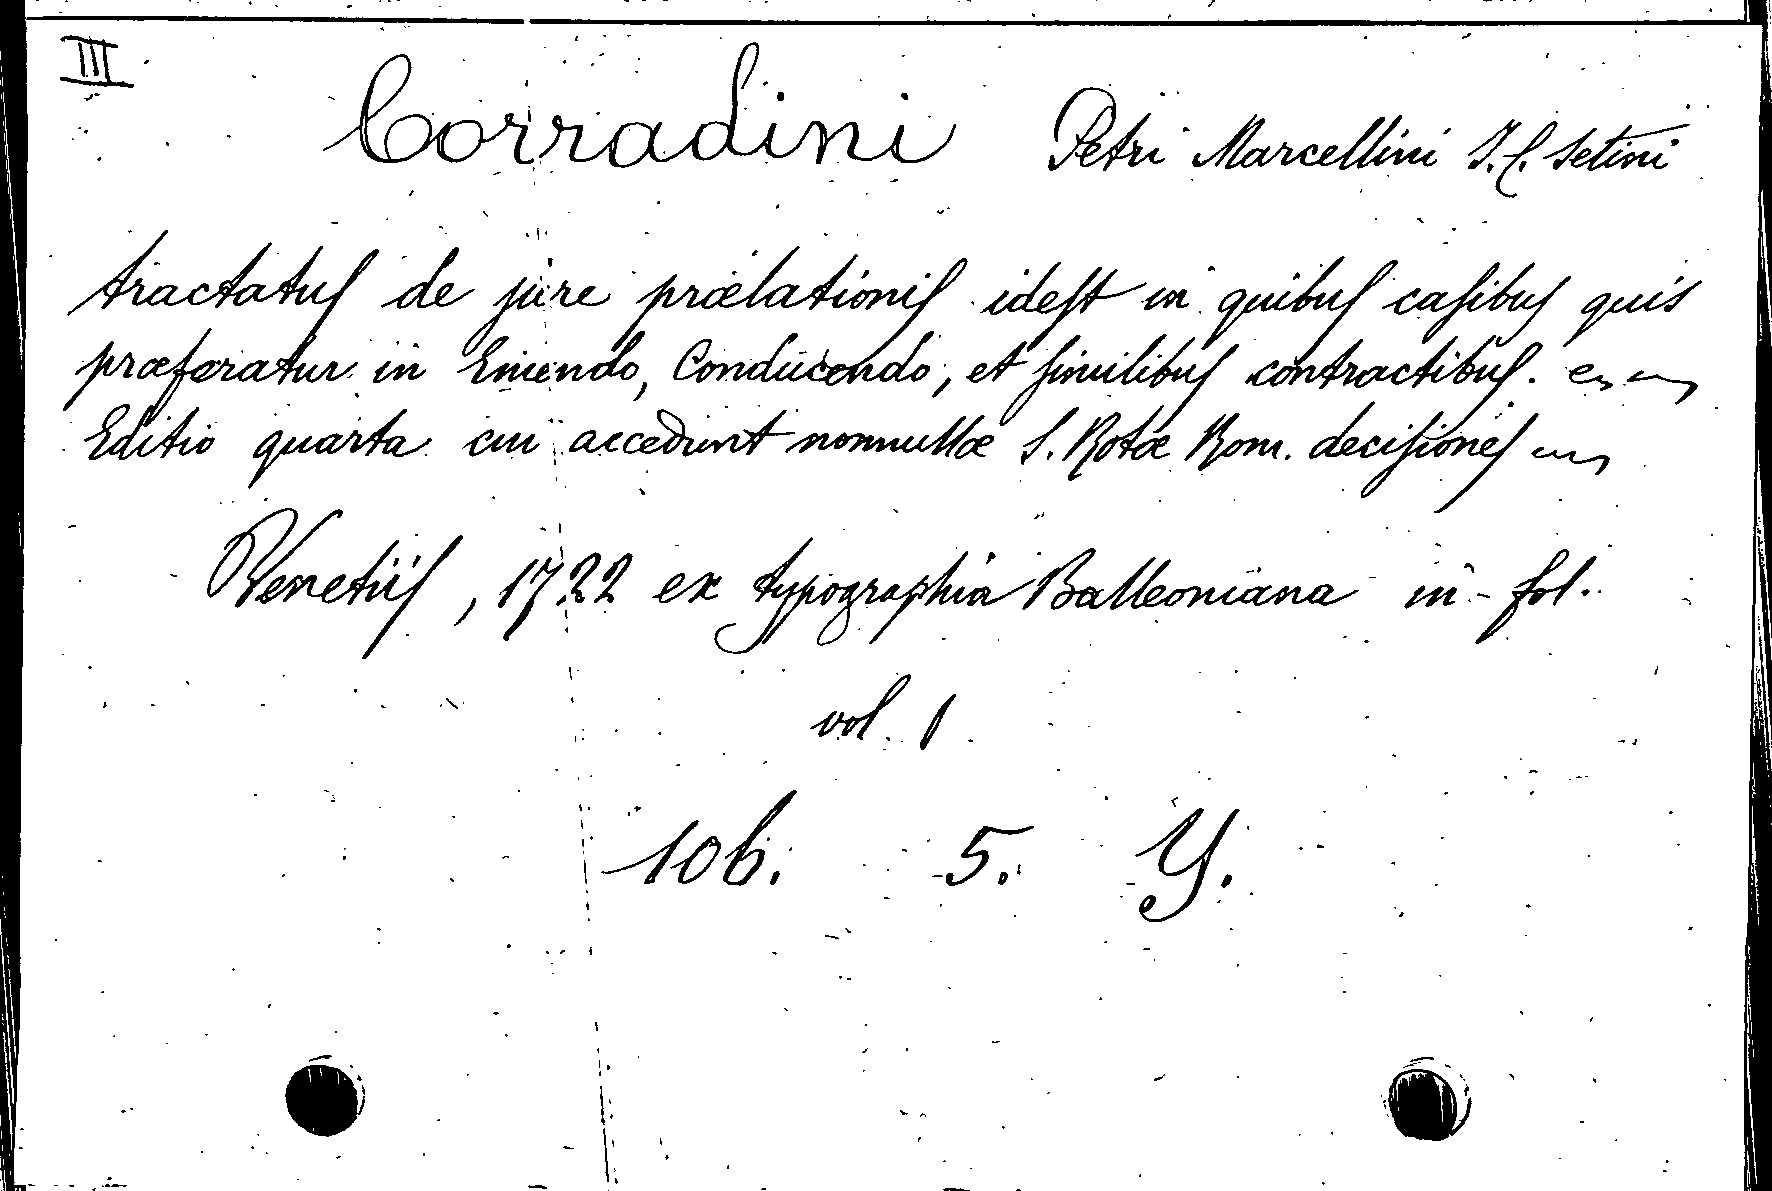 III
Corradini Petri Marcellini J. C. Setini
tractatuſ de jure prælationiſ ideſt in quibuſ caſibuſ quis
præferatur in Emendo, Conducendo, et ſimilibuſ contractibuſ.
Editio quarta cui accedunt nonnullæ S. Rotæ Rom. deciſioneſ
Venetiiſ, 1722 ex typographia Balleoniana in-fol.
vol. 1
106. 5. Y.